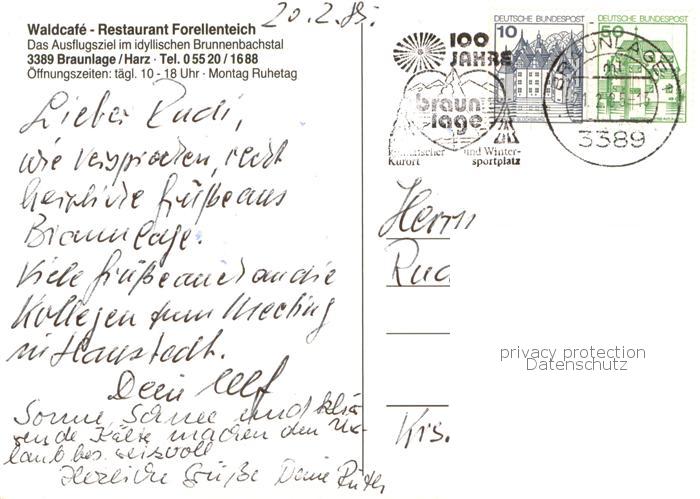 20.2.85.
Waldcafé - Restaurant Forellenteich
Das Ausflugsziel im idyllischen Brunnenbachstal
3389 Braunlage/Harz · Tel. 0 55 20 / 16 88
Öffnungszeiten: tägl. 10 - 18 Uhr · Montag Ruhetag
Lieber Rudi,
wie versprochen, recht
herzliche Grüße aus
Braunlage.
Viele Grüße auch an die
Kollegen zum Meeting
in Hanstedt.
Dein Ulf
Sonne, Schnee und klir-
rende Kälte machen den Ur-
laub bes. reizvoll
Herzliche Grüße Deine Ruth
100
JAHRE
braun
lage
heilklimatischer und Winter-
Kurort sportplatz
DEUTSCHE BUNDESPOST
10
DEUTSCHE BUNDESPOST
50
BRAUNLAGE
3389
Herrn
Rud
Krs.
privacy protection
Datenschutz